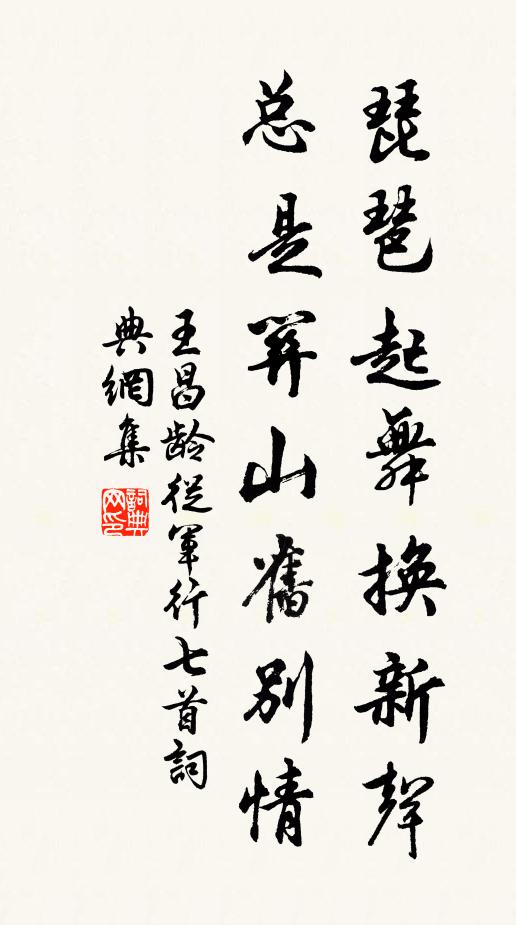 琵琶起舞換新聲
总是關山舊別情
王昌龄從軍行七首詞
典網集
詞典
网印